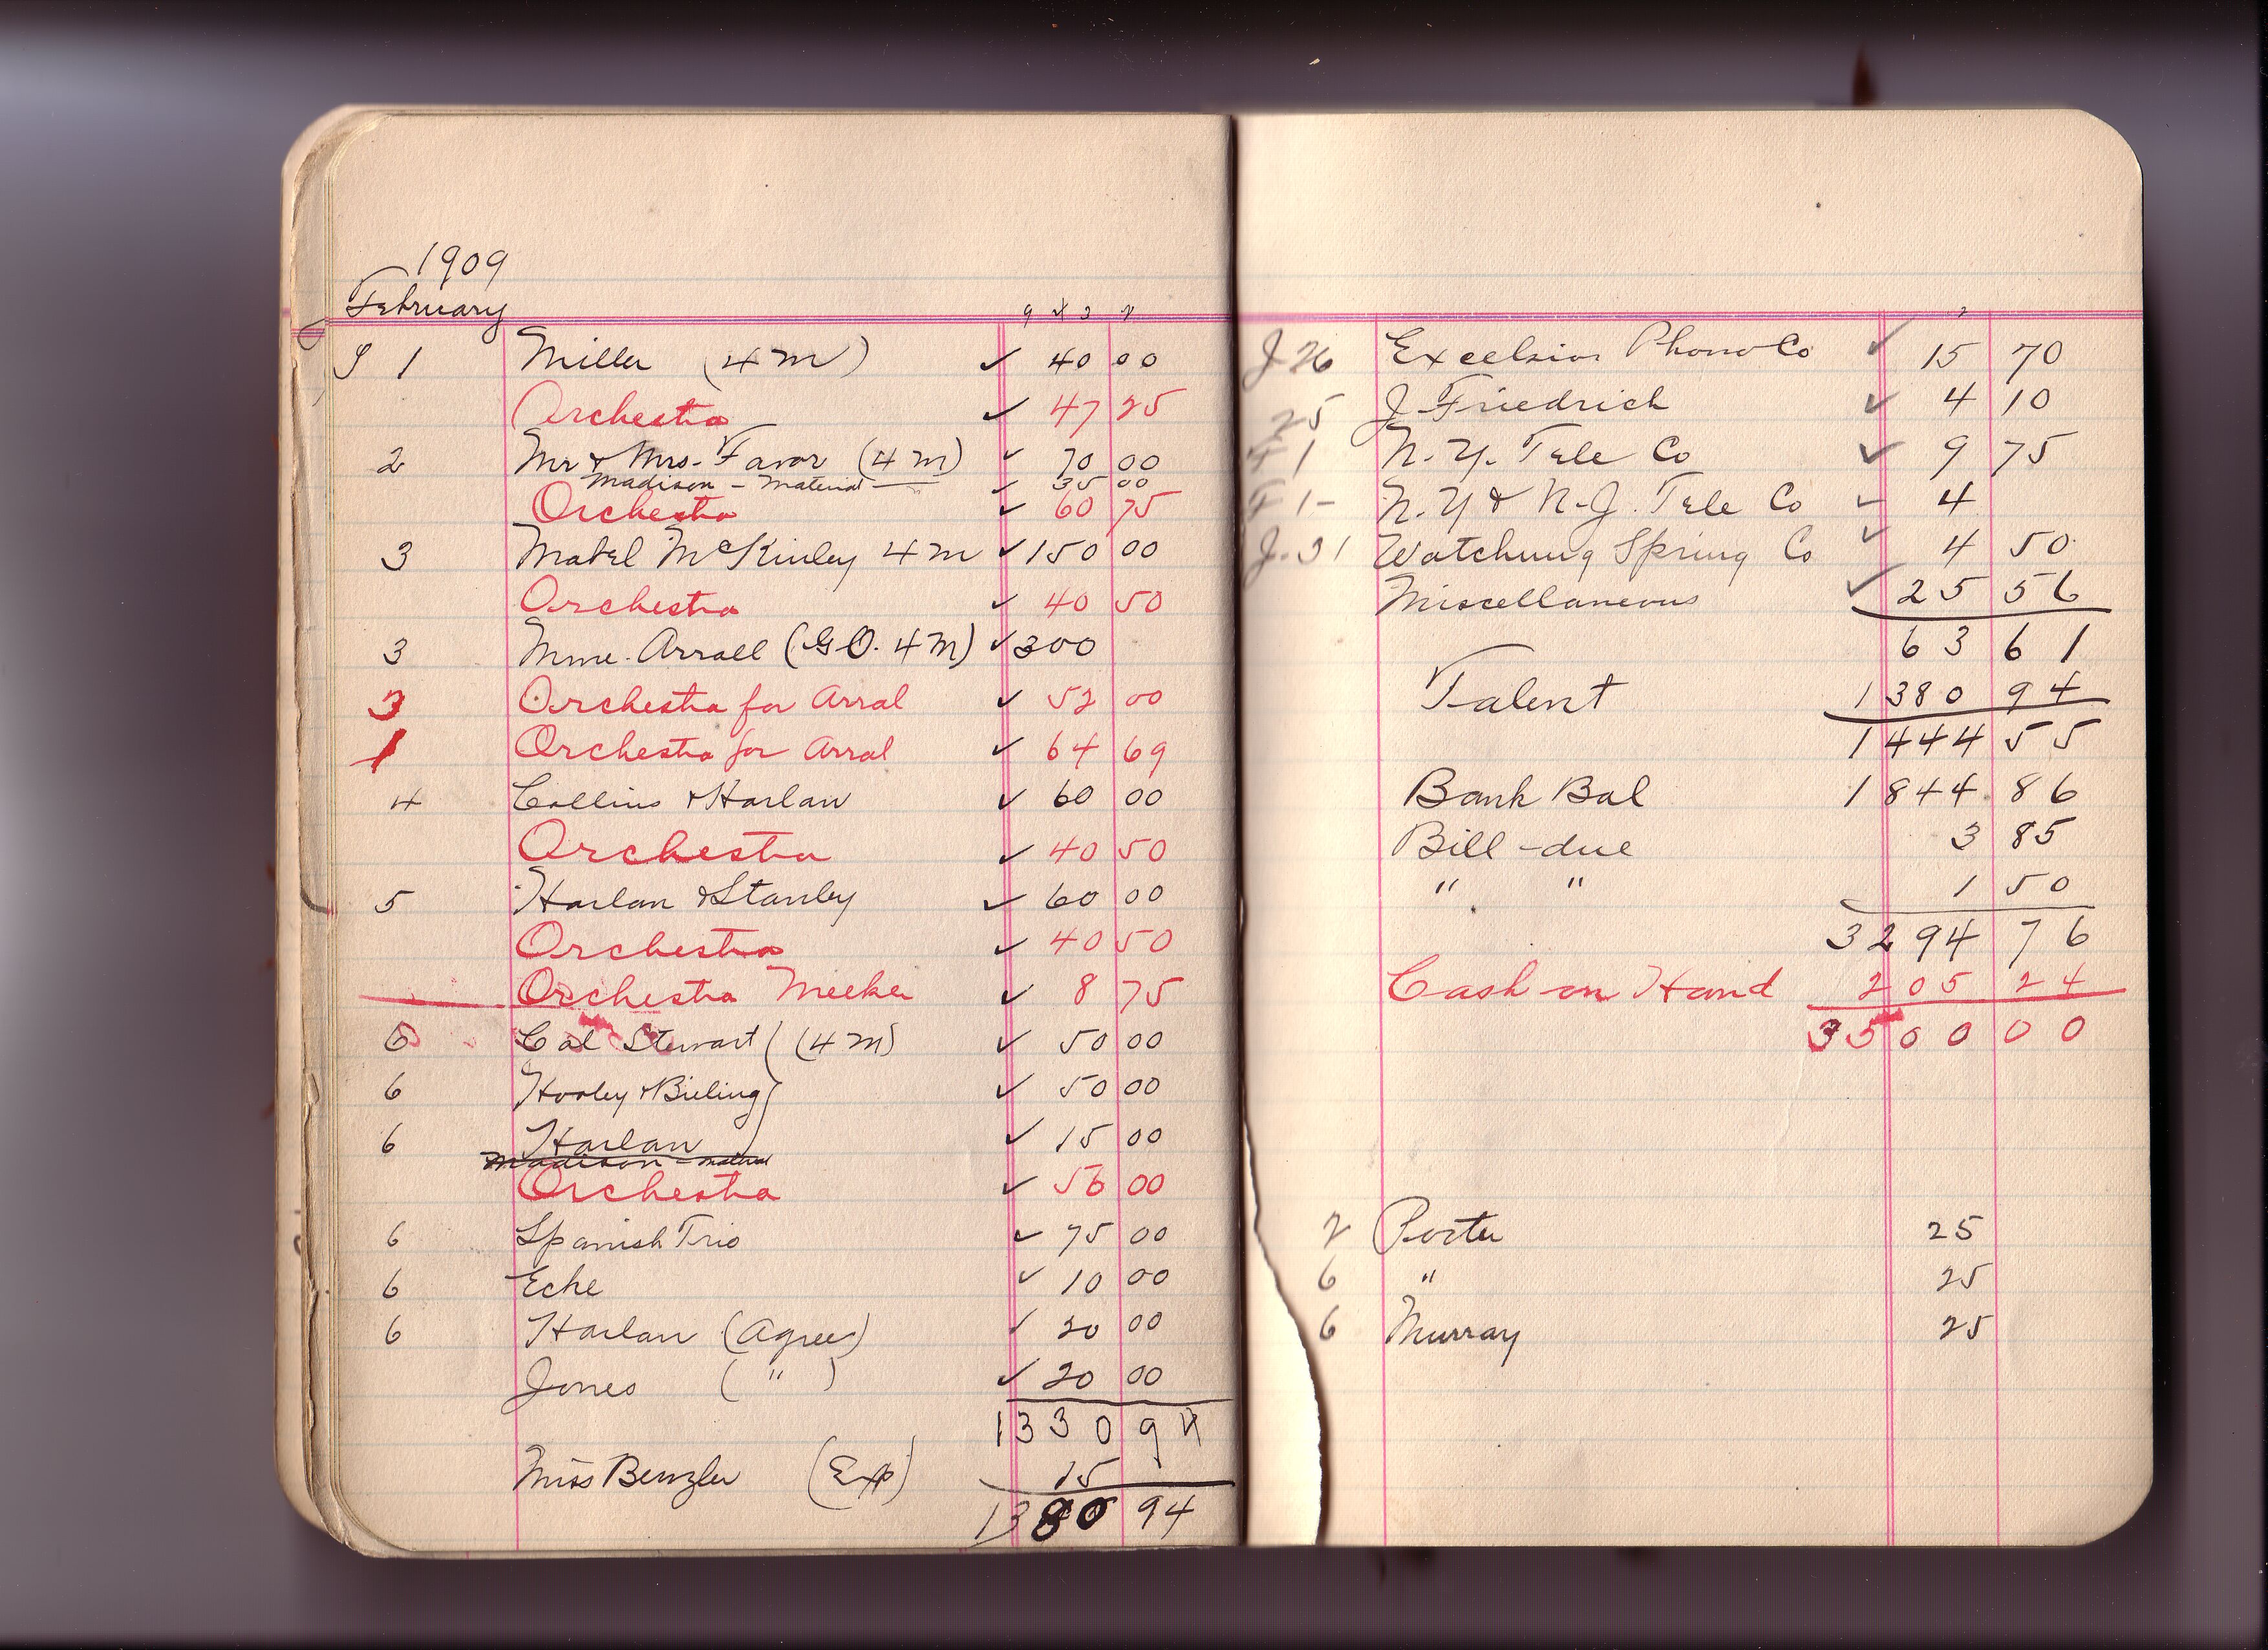 1909
February
9 4 3 2
1 Miller (4 m) ✓ 40 00
Orchestra ✓ 47 25
2 Mr & Mrs. Favor (4 m) ✓ 70 00
Madison - Material ✓ 35 00
Orchestra ✓ 60 75
3 Mabel McKinley 4 m ✓ 150 00
Orchestra ✓ 40 50
3 Mme. Arrall (G.O. 4 m) ✓ 300
3 Orchestra for Arral ✓ 52 00
1 Orchestra for Arral ✓ 64 69
4 Collins & Harlan ✓ 60 00
Orchestra ✓ 40 50
5 Harlan & Stanley ✓ 60 00
Orchestra ✓ 40 50
Orchestra Meeker ✓ 8 75
6 Cal Stewart (4 m) ✓ 50 00
6 Hooley & Bieling ✓ 50 00
6 Harlan ✓ 15 00
Madison - material
Orchestra ✓ 56 00
6 Spanish Trio ✓ 75 00
6 Eche ✓ 10 00
6 Harlan (Agree) ✓ 20 00
Jones ( " ) ✓ 20 00
1330 94
Miss Benzler (Exp) 15
1380 94
J 26 Excelsior Phono Co ✓ 15 70
25 J. Friedrich ✓ 4 10
F 1 N. Y. Tele Co ✓ 9 75
F 1- N. Y & N. J. Tele Co ✓ 4
J. 31 Watchung Spring Co ✓ 4 50
Miscellaneous ✓ 25 56
63 61
Talent 1380 94
1444 55
Bank Bal 1844.86
Bill - due 3 85
" " 1 50
3294 76
Cash on Hand 205 24
3500 00
2 Porter 25
6 " 25
6 Murray 25